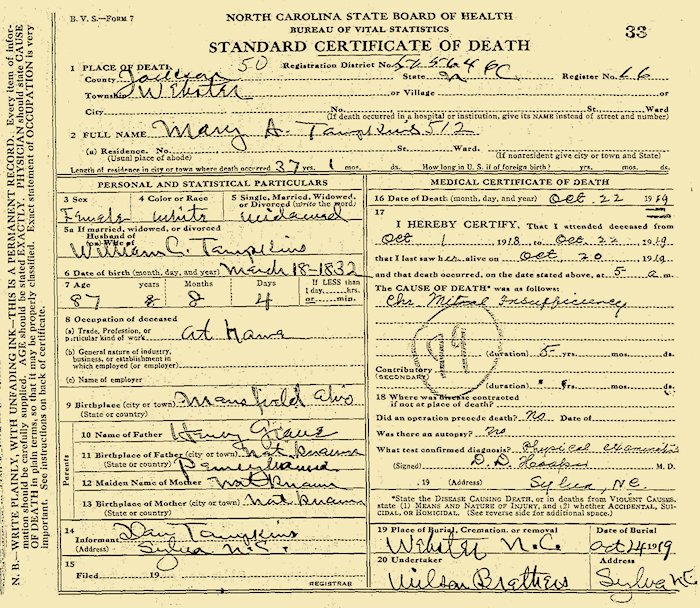 B. V. S.—FORM 7
NORTH CAROLINA STATE BOARD OF HEALTH
BUREAU OF VITAL STATISTICS
STANDARD CERTIFICATE OF DEATH
33
1 PLACE OF DEATH 50 Registration District No.
County Jackson State Register No. 66
Township Webster or Village or
City No. St. Ward
(If death occurred in a hospital or institution, give its NAME instead of street and number)
2 FULL NAME Mary A. Tampkins 512
(a) Residence. No. St. Ward.
(Usual place of abode) (If nonresident give city or town and State)
Length of residence in city or town where death occurred 37 yrs. 1 mos. ds. How long in U. S. if of foreign birth? yrs. mos. ds.
PERSONAL AND STATISTICAL PARTICULARS
3 Sex 4 Color or Race 5 Single, Married, Widowed, or Divorced (write the word)
Female white widowed
5a If married, widowed, or divorced
Husband of
(or) Wife of
William C. Tampkins
6 Date of birth (month, day, and year) March 18-1832
7 Age Years Months Days If LESS than 1 day, hrs. or min.
87 8 8 4
8 Occupation of deceased
(a) Trade, Profession, or particular kind of work at Home
(b) General nature of industry, business, or establishment in which employed (or employer)
(c) Name of employer
9 Birthplace (city or town) Mansfield Ohio
(State or country)
Parents
10 Name of Father Henry
11 Birthplace of Father (city or town) not known
(State or country) Pennsylvania
12 Maiden Name of Mother not known
13 Birthplace of Mother (city or town) not known
(State or country)
14
Informant Dan Tampkins
(Address) Sylva N.C.
15
Filed 19
REGISTRAR
MEDICAL CERTIFICATE OF DEATH
16 Date of Death (month, day, and year) Oct 22 1919
17
I HEREBY CERTIFY, That I attended deceased
from Oct 1 1918 to Oct 22 1919
that I last saw her alive on Oct 20 1919
and that death occurred, on the date stated above, at 5 a m.
The CAUSE OF DEATH* was as follows:
Chr. Mitral Insufficiency
79
(duration) 5 yrs. mos. ds.
Contributory
(SECONDARY)
(duration) yrs. mos. ds.
18 Where was disease contracted
if not at place of death?
Did an operation precede death? No Date of
Was there an autopsy? No
What test confirmed diagnosis? Physical
(Signed) D. D. M. D.
19 (Address) Sylva N.C.
*State the DISEASE CAUSING DEATH, or in deaths from VIOLENT CAUSES, state (1) MEANS AND NATURE OF INJURY, and (2) whether ACCIDENTAL, SUICIDAL, or HOMICIDAL. (See reverse side for additional space.)
19 Place of Burial, Cremation, or removal Date of Burial
Webster N.C. 1919
20 Undertaker Address
Wilson Brothers Sylva NC
N. B.—WRITE PLAINLY, WITH UNFADING INK—THIS IS A PERMANENT RECORD. Every item of information should be carefully supplied. AGE should be stated EXACTLY. PHYSICIAN should state CAUSE OF DEATH in plain terms, so that it may be properly classified. Exact statement of OCCUPATION is very important. See instructions on back of certificate.